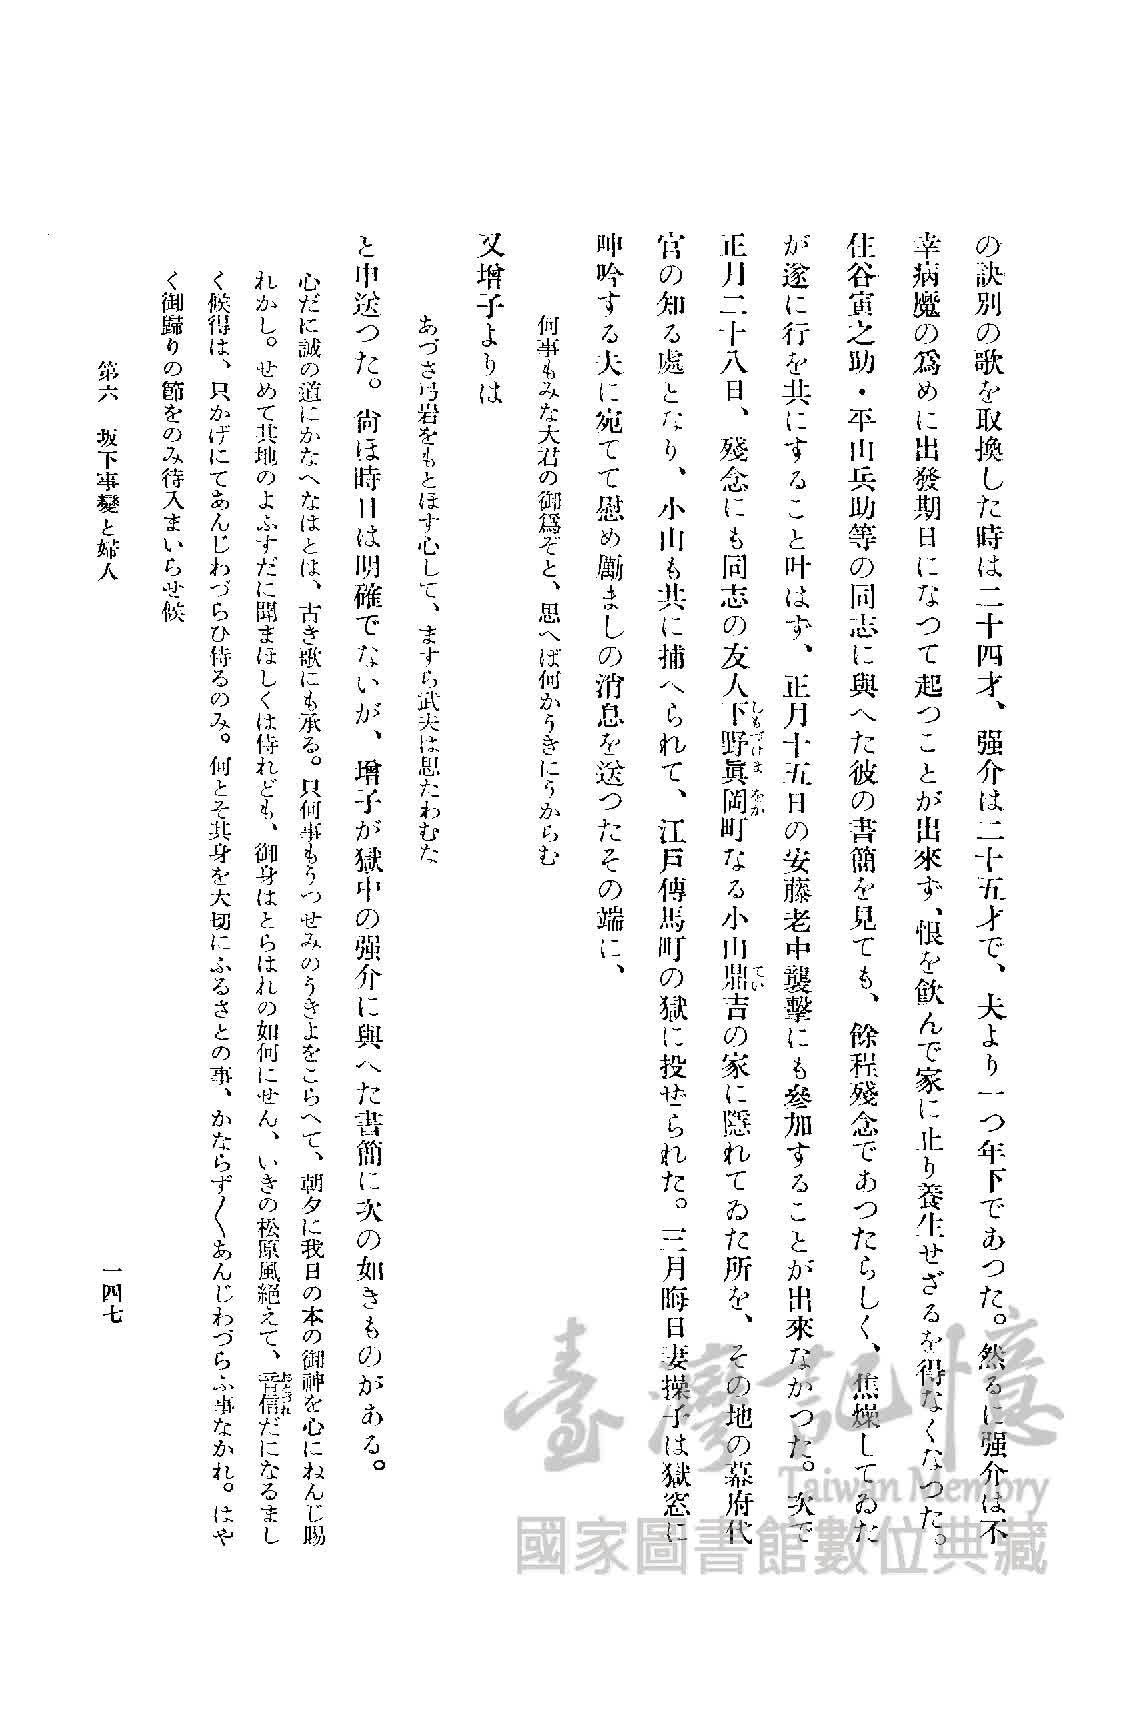 の訣別の歌を取換した時は二十四才、强介は二十五才で、夫より一つ年下であつた。然るに强介は不
幸病魔の爲めに出發期日になつて起つことが出來ず、恨を飮んで家に止り養生せざるを得なくなつた。
住谷寅之助・平山兵助等の同志に與へた彼の書簡を見ても、餘程殘念であつたらしく、焦燥してゐた
が遂に行を共にすること叶はず、正月十五日の安藤老中襲擊にも參加することが出來なかつた。次で
正月二十八日、殘念にも同志の友人下野眞岡町なる小山鼎吉の家に隱れてゐた所を、その地の幕府代
しもづけま をか てい
官の知る處となり、小山も共に捕へられて、江戶傳馬町の獄に投ぜられた。三月晦日妻操子は獄窓に
呻吟する夫に宛てて慰め勵ましの消息を送つたその端に、
何事もみな大君の御爲ぞと、思へば何かうきにうからむ
又增子よりは
あづさ弓岩をもとほす心して、ますら武夫は思たわむな
と申送つた。尙ほ時日は明確でないが、增子が獄中の强介に與へた書簡に次の如きものがある。
心だに誠の道にかなへなはとは、古き歌にも承る。只何事もうつせみのうきよをこらへて、朝夕に我日の本の御神を心にねんじ賜
れかし。せめて其地のよふすだに聞まほしくは侍れども、御身はとらはれの如何にせん、いきの松原風絕えて、音信だになるまし
おとづれ
く候得は、只かげにてあんじわづらひ侍るのみ。何とそ其身を大切にふるさとの事、かならず〱あんじわづらふ事なかれ。はや
く御歸りの節をのみ待入まいらせ候
第六 坂下事變と婦人
一四七
臺灣記憶
Taiwan Memory
國家圖書館數位典藏